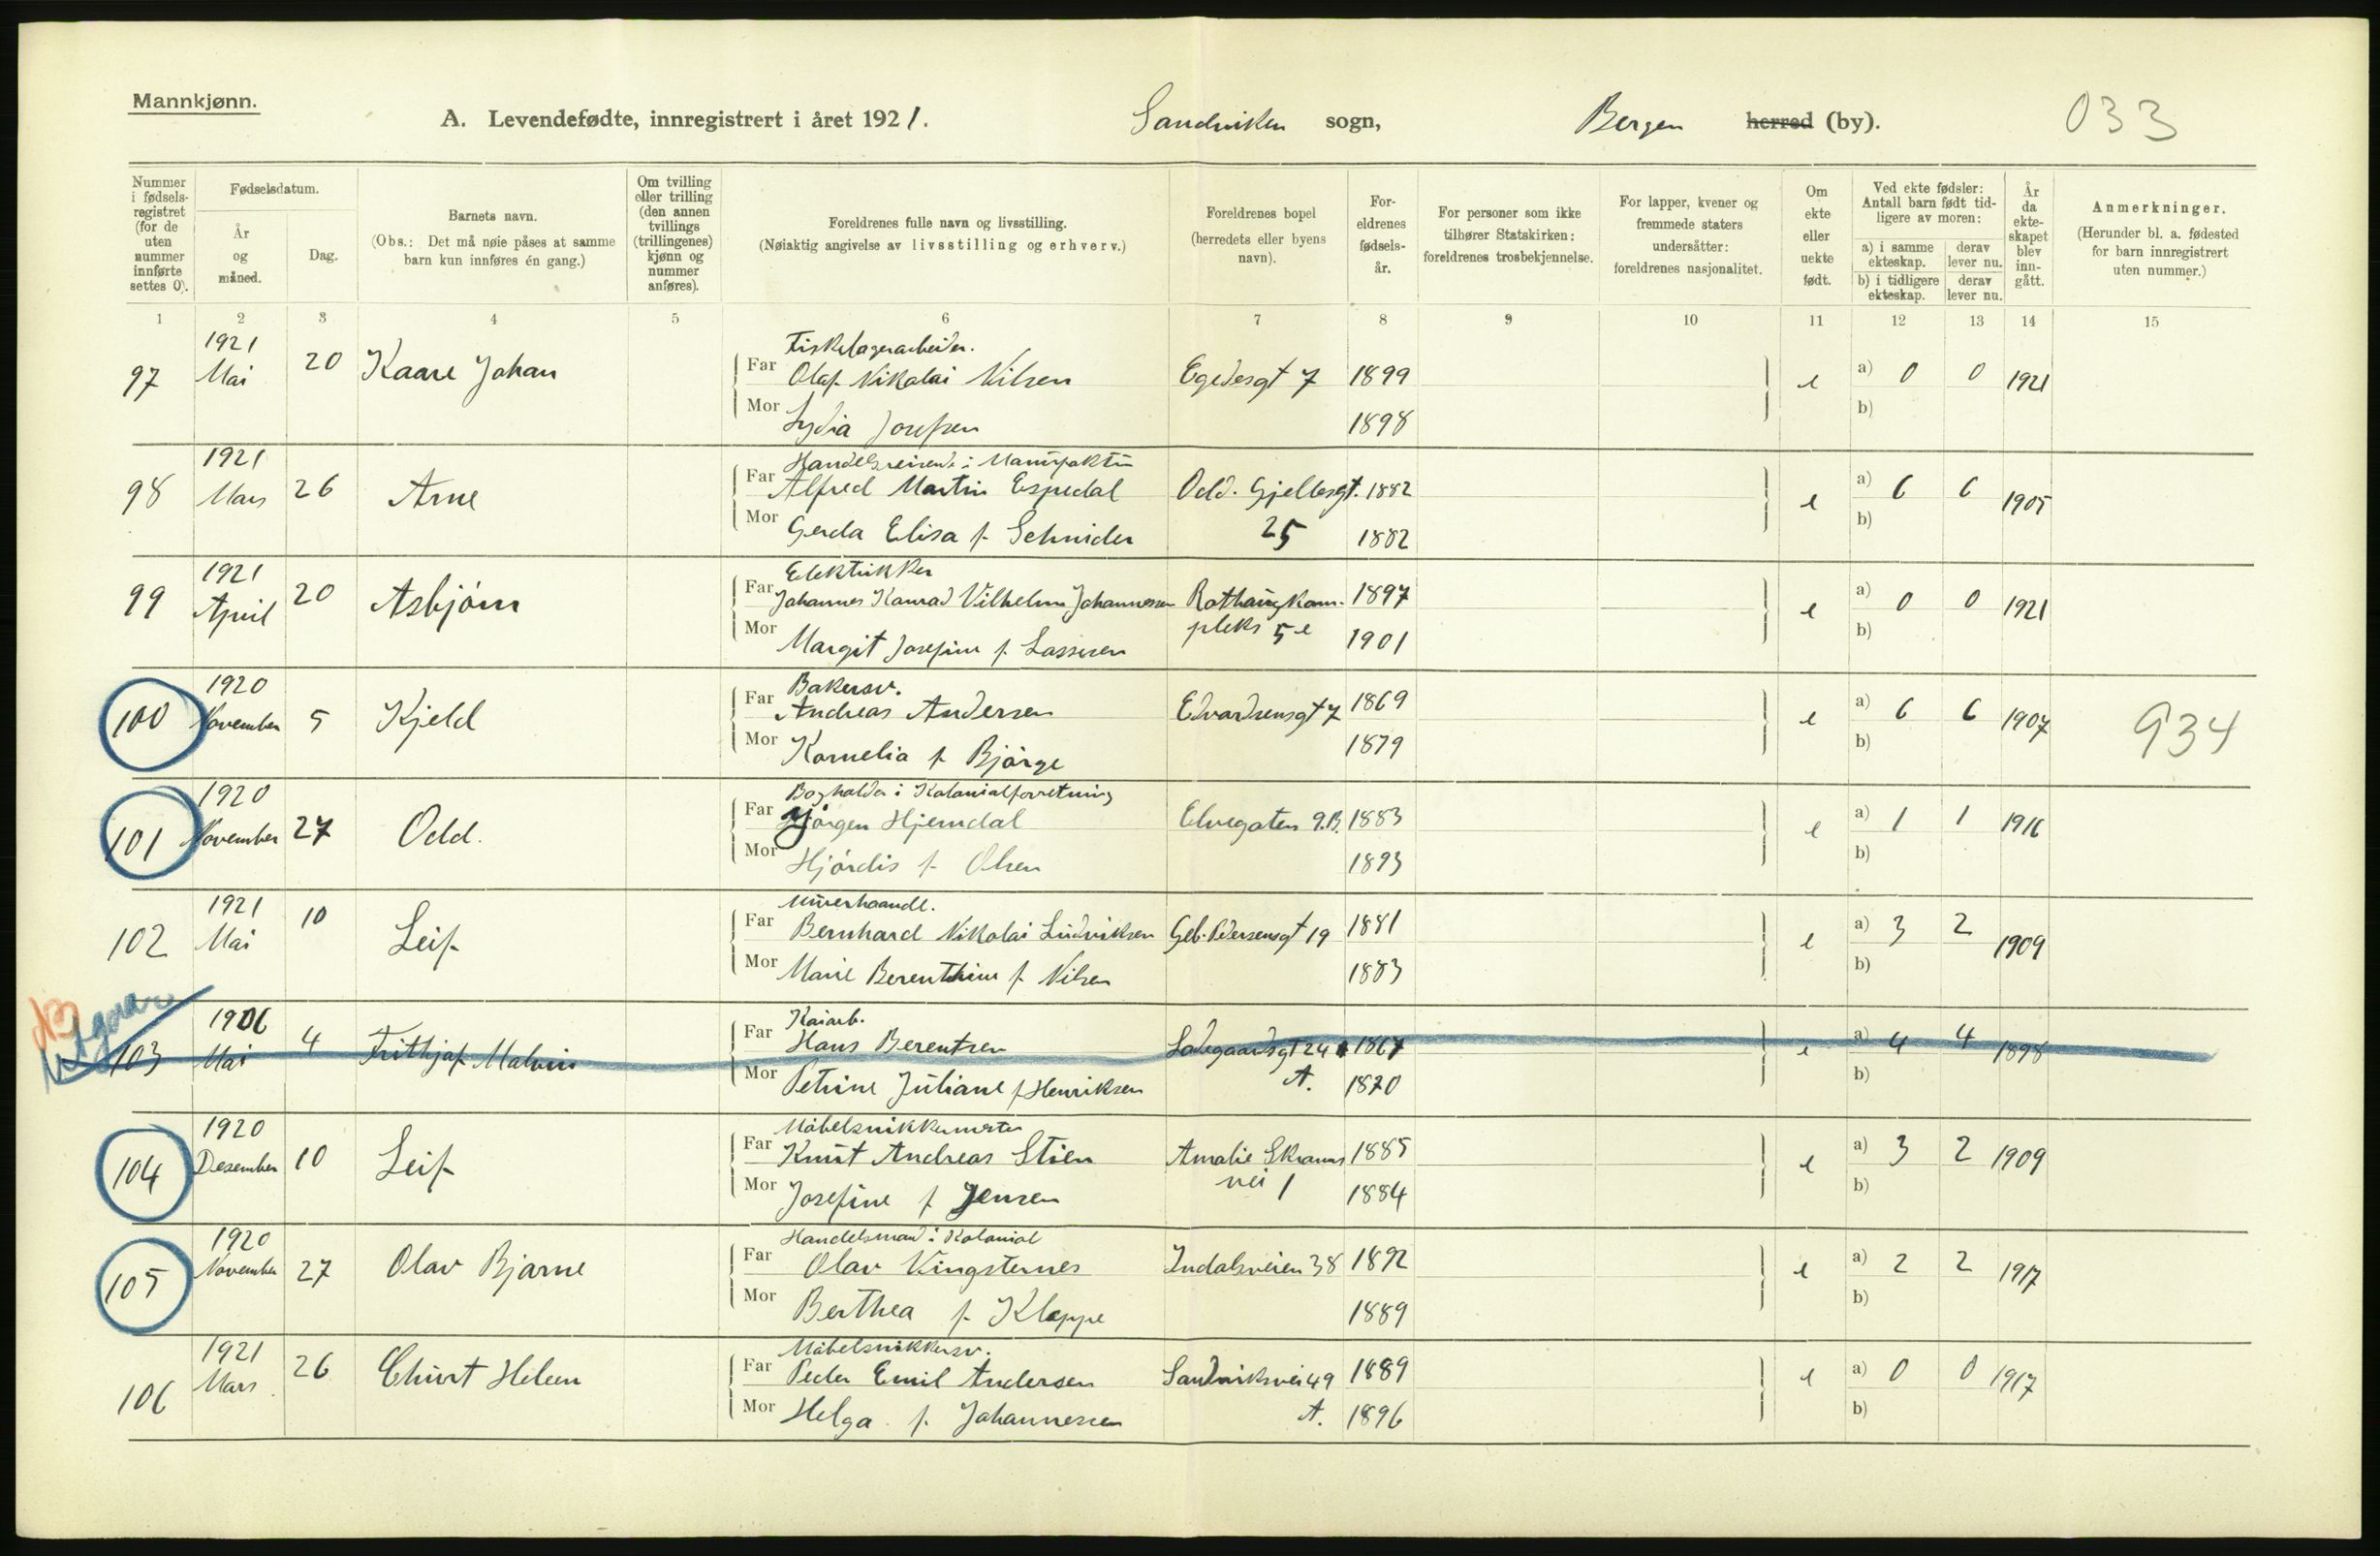 Mannkjønn.
A. Levendefødte, innregistrert i året 1921. Sandviken sogn, Bergen herred (by). 033
Nummer i fødsels-registret (for de uten nummer innførte settes 0).
Fødselsdatum.
År og måned.
Dag.
Barnets navn.
(Obs.: Det må nøie påses at samme barn kun innføres én gang.)
Om tvilling eller trilling (den annen tvillings (trillingenes) kjønn og nummer anføres).
Foreldrenes fulle navn og livsstilling.
(Nøiaktig angivelse av livsstilling og erhverv.)
Foreldrenes bopel (herredets eller byens navn).
For-eldrenes fødsels-år.
For personer som ikke tilhører Statskirken: foreldrenes trosbekjennelse.
For lapper, kvener og fremmede staters undersåtter: foreldrenes nasjonalitet.
Om ekte eller uekte født.
Ved ekte fødsler: Antall barn født tid-ligere av moren:
a) i samme ekteskap. derav lever nu.
b) i tidligere ekteskap. derav lever nu.
År da ekte-skapet blev inn-gått.
Anmerkninger.
(Herunder bl. a. fødested for barn innregistrert uten nummer.)
1 2 3 4 5 6 7 8 9 10 11 12 13 14 15
1921 Fiskelagerarbeider.
97 Mai 20 Kaare Johan Far Olaf Nikolai Nilsen Egedesgt 7 1899 e a) 0 0 1921
Mor Lydia Josefsen 1898 b)
1921 Handelsreisende i Manufaktur
98 Mars 26 Arne Far Alfred Martin Espedal Odd. Gjellesgt. 1882 e a) 6 6 1905
Mor Gerda Elisa f. Schnider 25 1882 b)
1921 Elektrikker
99 April 20 Asbjörn Far Johannes Konrad Vilhelm Johannessen Rothaugkom- 1897 e a) 0 0 1921
Mor Margit Josefine f. Lassesen pleks 5 e 1901 b)
1920 Bakersv.
100 November 5 Kjeld Far Andreas Andersen Edvardsensgt 7 1869 e a) 6 6 1907 934
Mor Kornelia f. Bjørge 1879 b)
1920 Bogholder i Kolonialforretning
101 November 27 Odd. Far Jörgen Hjemdal Elvegaten 9.B. 1883 e a) 1 1 1916
Mor Hjördis f. Olsen 1893 b)
1921 Murerhaandl.
102 Mai 10 Leif Far Bernhard Nikolai Ludviksen Geb. Pedersensgt 19 1881 e a) 3 2 1909
Mor Marie Berenthine f. Nilsen 1883 b)
1906 Kaiarb.
103 Mai 4 Frithjof Malvin Far Hans Berentsen Ladegaardsgt 24 1867 e a) 4 4 1898
Mor Petrine Juliane f Henriksen A. 1870 b)
1920 Möbelsnikkermester
104 Desember 10 Leif Far Knut Andreas Stien Amalie Skrams 1885 e a) 3 2 1909
Mor Josefine f Jensen vei 1 1884 b)
1920 Handelsmand i Kolonial
105 November 27 Olav Bjarne Far Olav Vingsternes Indalsveien 38 1892 e a) 2 2 1917
Mor Berthea f. Kleppe 1889 b)
1921 Möbelsnikkersv.
106 Mars 26 Churt Heleen Far Peder Emil Andersen Sandviksvei 49 1889 e a) 0 0 1917
Mor Helga f. Johannessen A. 1896 b)